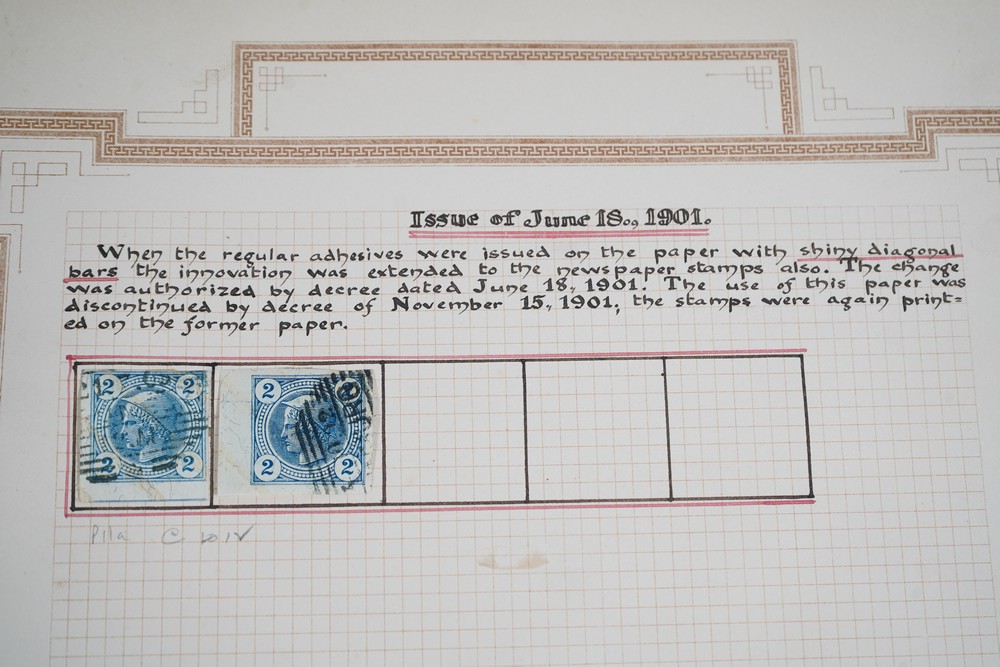 Issue of June 18., 1901.
When the regular adhesives were issued on the paper with shiny diagonal
bars the innovation was extended to the newspaper stamps also. The change
was authorized by decree dated June 18., 1901. The use of this paper was
discontinued by decree of November 15., 1901; the stamps were again print=
ed on the former paper.
2 2 2 2
2 2 2 2